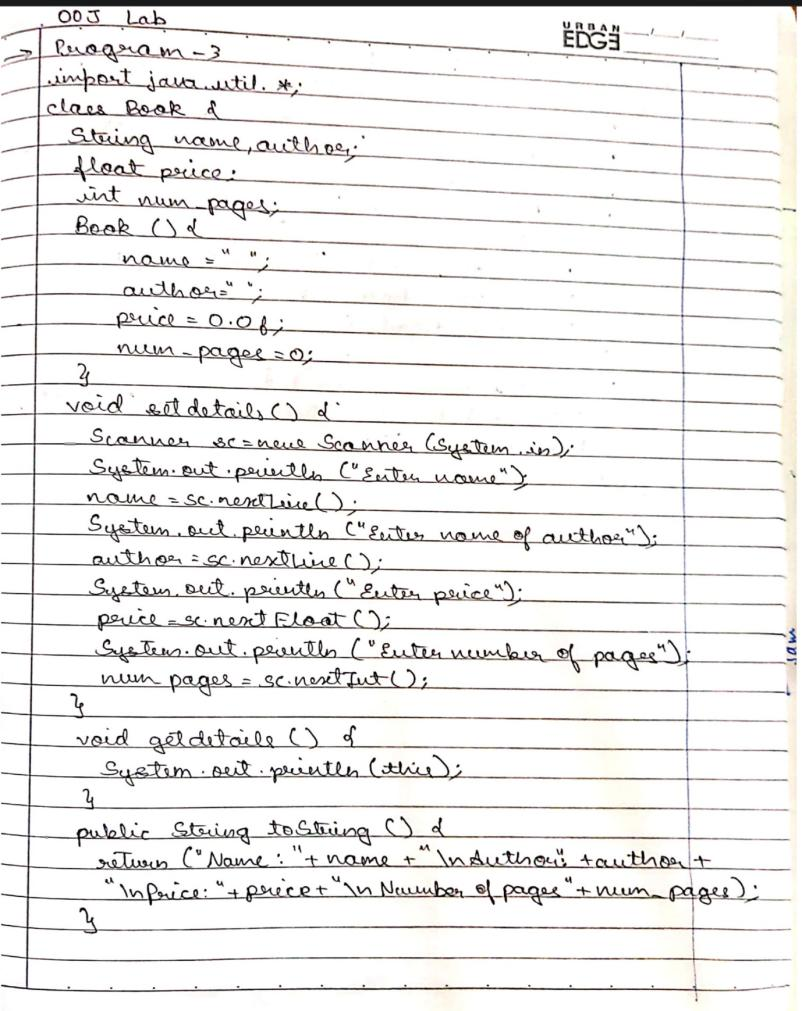 OOJ Lab
URBAN
EDGE
→ Program-3
import java.util.*;
class Book {
String name, author;
float price;
int num_pages;
Book () {
name = " ";
author = " ";
price = 0.0f;
num_pages = 0;
}
void setdetails () {
Scanner sc = new Scanner (System.in);
System.out.println ("Enter name");
name = sc.nextLine();
System.out.println ("Enter name of author");
author = sc.nextLine();
System.out.println ("Enter price");
price = sc.nextFloat();
System.out.println ("Enter number of pages");
num pages = sc.nextInt();
}
void getdetails () {
System.out.println (this);
}
public String toString () {
return ("Name: " + name + "\nAuthor:" + author +
"\nPrice: " + price + "\n Number of pages" + num_pages);
}